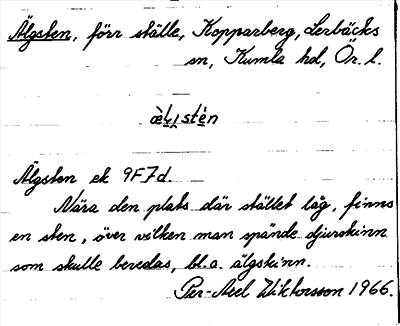 Älgsten, förr ställe, Kopparberg, Lerbäcks
sn, Kumla hd, Ör. l.
Älgsten ek 9F7d
Nära den plats där stället låg, finns
en sten, över vilken man spände djurskinn
som skulle beredas, bl.a. älgskinn.
Per-Axel Wiktorsson 1966.